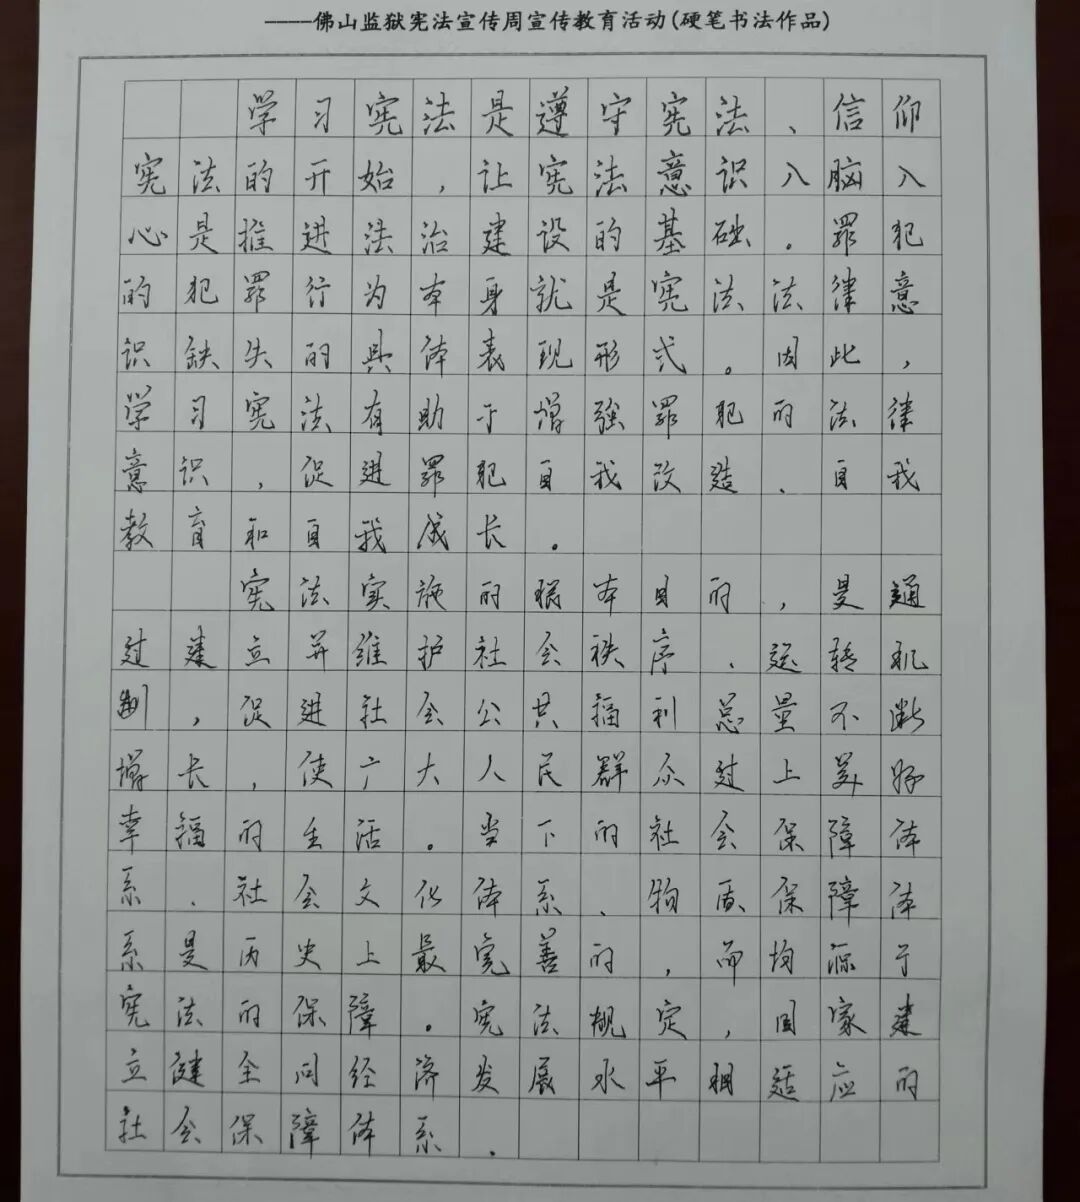 ----佛山监狱宪法宣传周宣传教育活动(硬笔书法作品)
学习宪法是遵守宪法、信仰
宪法的开始，让宪法意识入脑入
心是推进法治建设的基础。罪犯
的犯罪行为本身就是宪法法律意
识缺失的具体表现形式。因此，
学习宪法有助于增强罪犯的法律
意识，促进罪犯自我改造、自我
教育和自我成长。
宪法实施的根本目的，是通
过建立并维护社会秩序、运转机
制，促进社会公共福利总量不断
增长，使广大人民群众过上美好
幸福的生活。当下的社会保障体
系、社会文化体系、物质保障体
系是历史上最完善的，而均源于
宪法的保障。宪法规定，国家建
立健全同经济发展水平相适应的
社会保障体系。